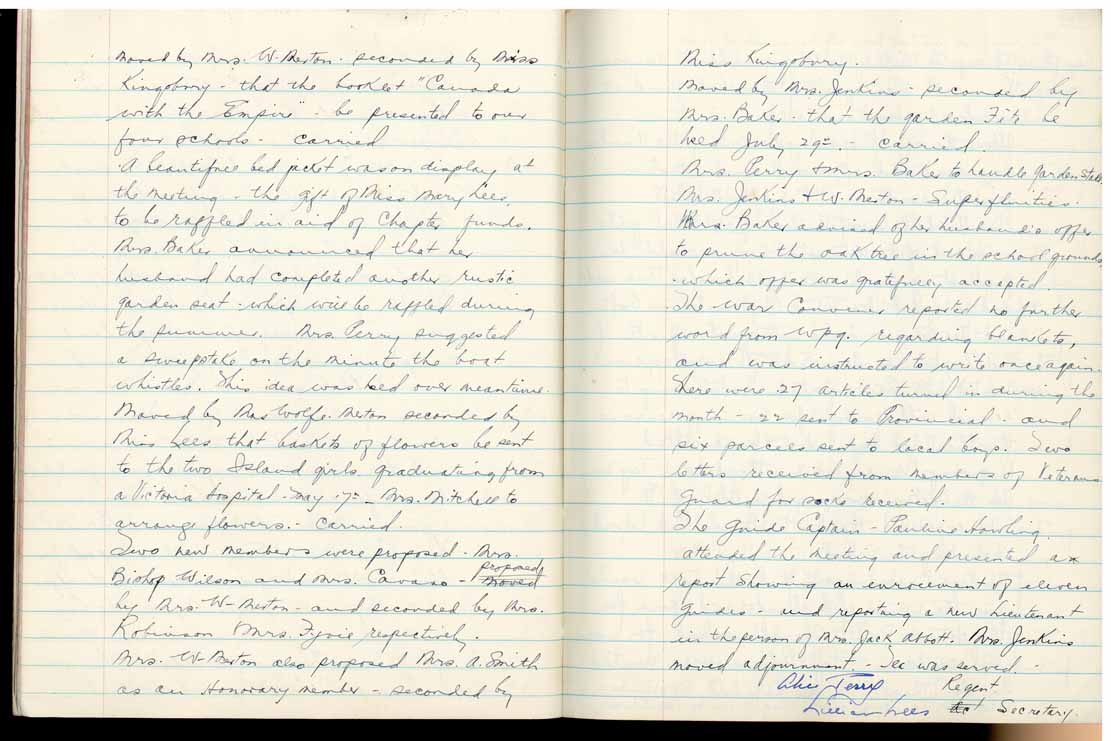 moved by Mrs. W-Merton - seconded by Miss
Kingsbury - that the booklet "Canada
with the Empire" - be presented to our
four schools - carried
A beautiful bed jacket was on display at
the meeting - the gift of Miss Mary Lees,
to be raffled in aid of Chapter funds.
Mrs. Baker announced that her
husband had completed another rustic
garden seat - which will be raffled during
the summer. Mrs. Perry suggested
a sweepstake on the minute the boat
whistles. This idea was held over meantime.
Moved by Mrs Wolfe-Merton seconded by
Miss Lees that baskets of flowers be sent
to the two Island girls graduating from
a Victoria hospital - May 17= - Mrs. Mitchell to
arrange flowers. - carried.
Two new members were proposed - Mrs.
Bishop Wilson and Mrs. Cavaso - proposed
by Mrs. W-Merton - and seconded by Mrs.
Robinson & Mrs. Fyvie respectively.
Mrs. W-Merton also proposed Mrs. A. Smith
as an Honorary member - seconded by
Miss Kingsbury.
Moved by Mrs. Jenkins - seconded by
Mrs. Baker - that the garden Fête be
held July 29= - carried.
Mrs. Perry & Mrs. Baker to handle garden stall.
Mrs. Jenkins & W. Merton - Superfluities.
Mrs. Baker advised of her husband's offer
to prune the oak tree in the school grounds
- which offer was gratefully accepted.
The War Convener reported no further
word from Wpg. regarding blankets,
and was instructed to write once again.
There were 27 articles turned in during the
month - 22 sent to Provincial - and
six parcels sent to local boys. Two
letters received from members of Veterans
Guard for socks received.
The Guide Captain - Pauline Howling,
attended the meeting and presented a
report showing an enrolment of eleven
Guides - and reporting a new Lieutenant
in the person of Mrs. Jack Abbott. Mrs. Jenkins
moved adjournment. - Tea was served -
Alice Perry Regent
Lillian Lees Secretary.